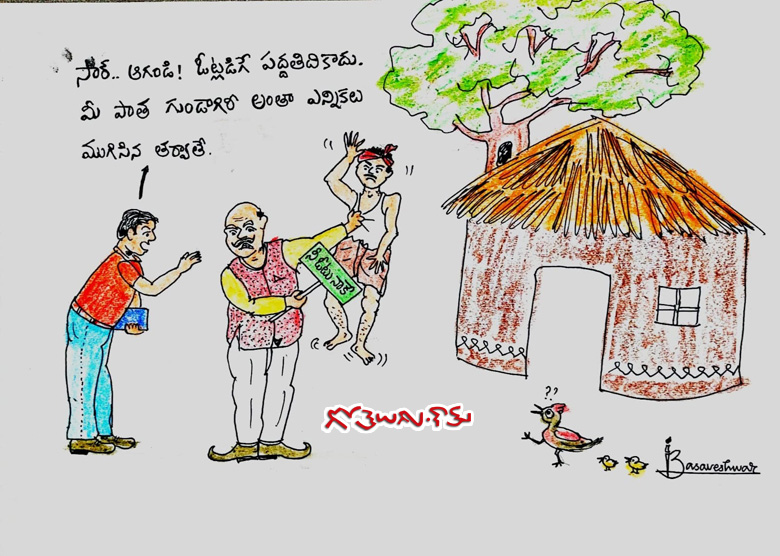 సార్.. ఆగండి! ఓట్లడిగే పద్దతిదికాదు.
మీ పాత గుండాగిరి అంతా ఎన్నికలు
ముగిసిన తర్వాతే.
నీ ఓటు నాకే
గోతెలుగు.కామ్
? ?
Basaveshwar